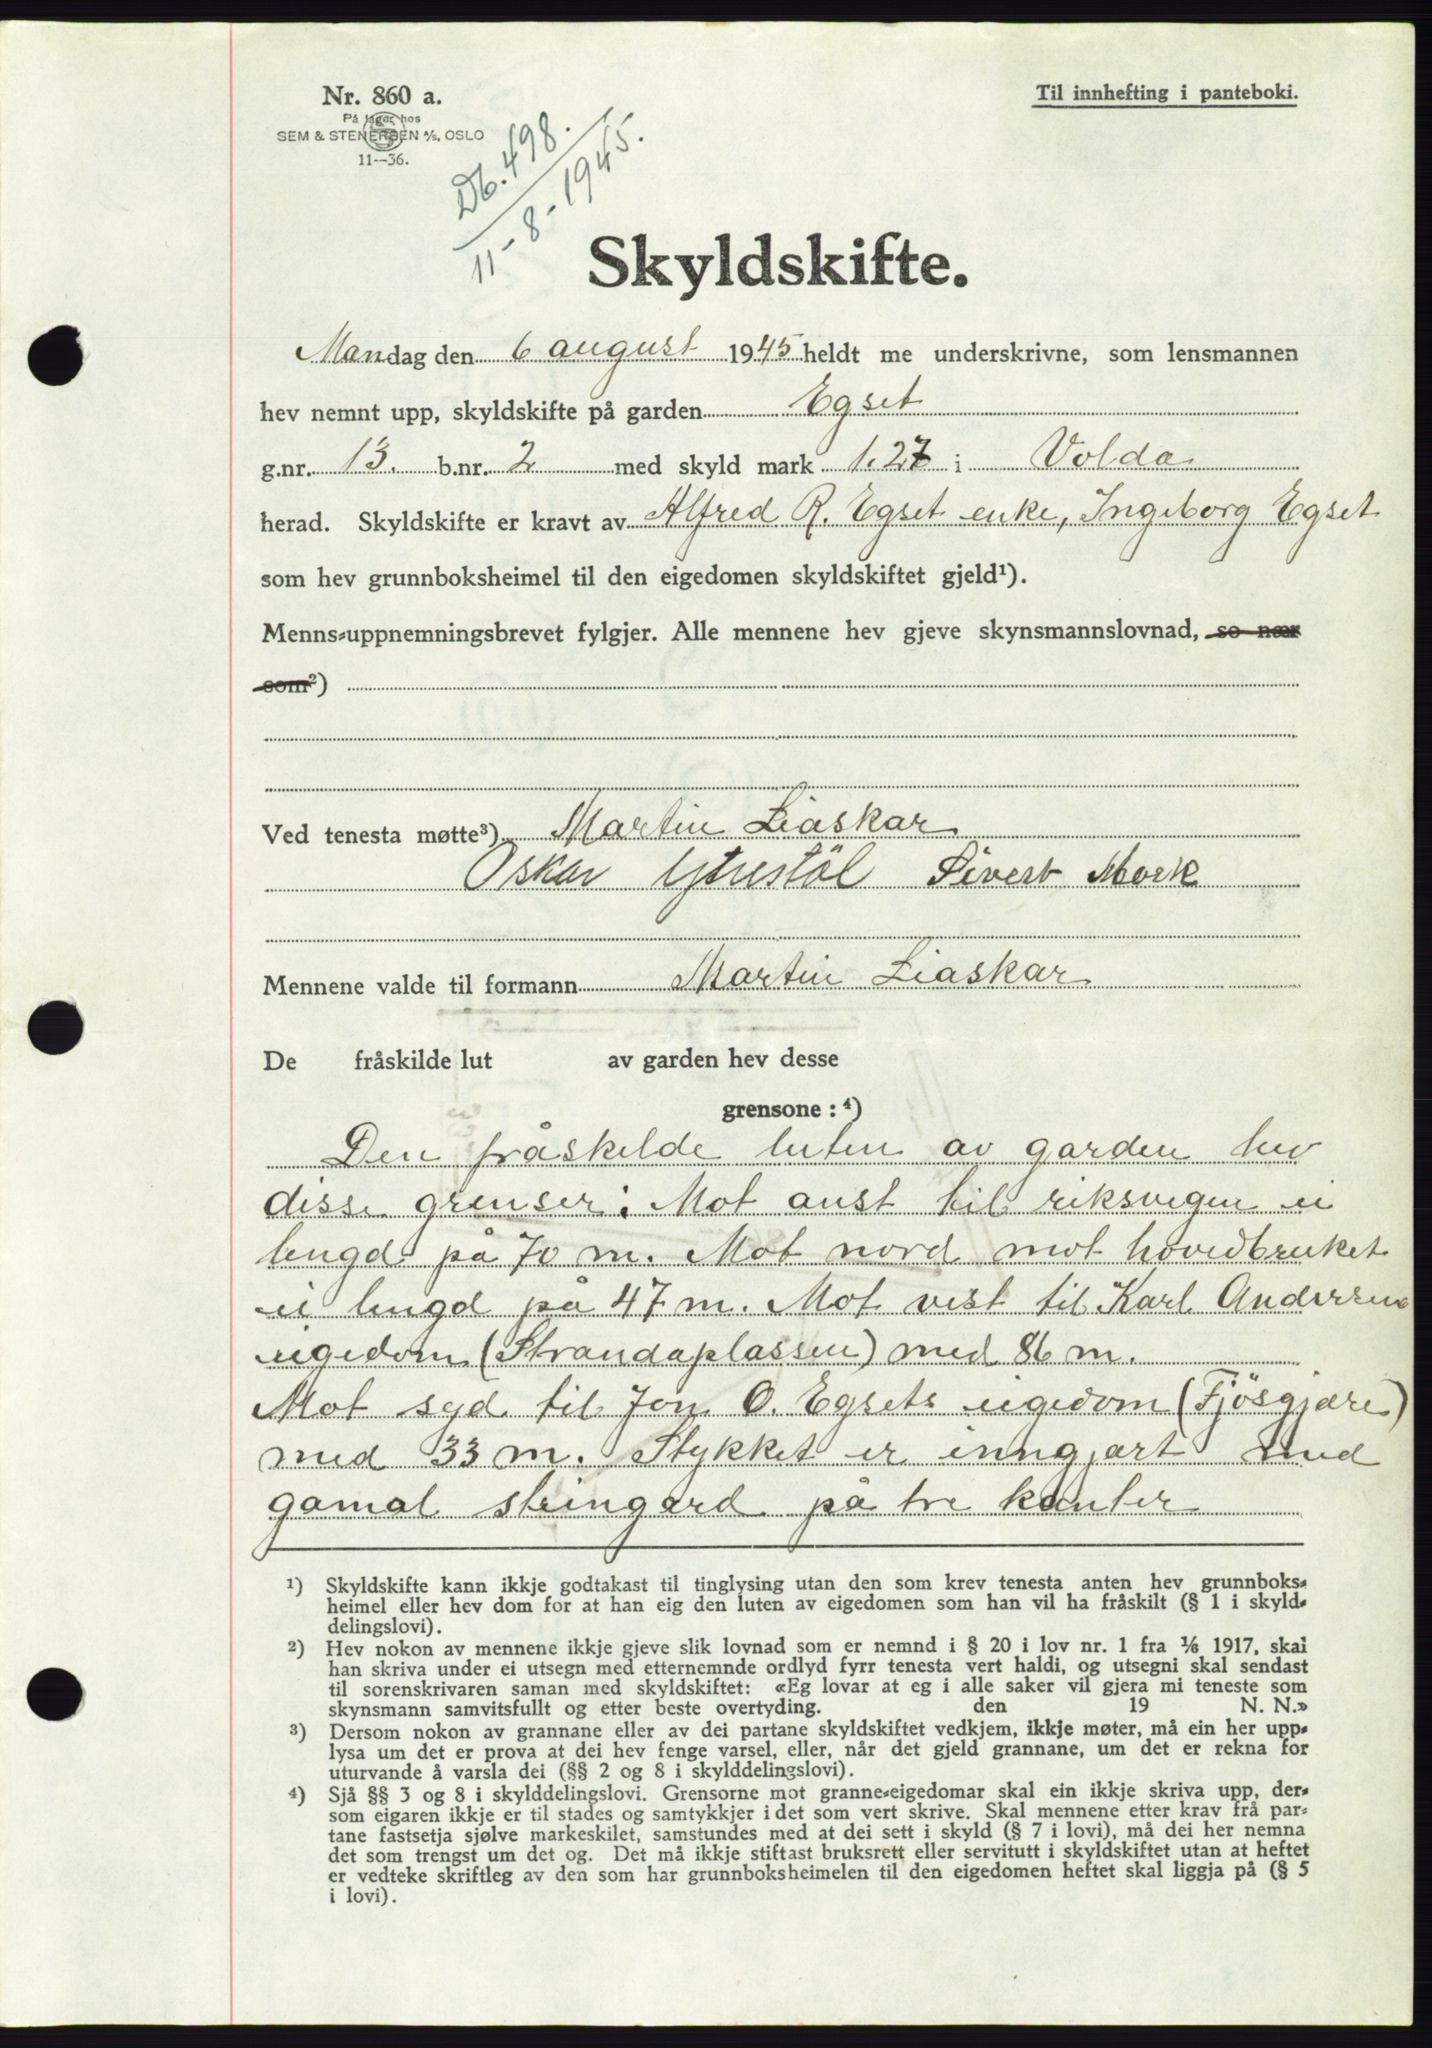 Nr. 860 a.
På lager hos
SEM & STENERSEN A/S, OSLO
11—36.
Til innhefting i panteboki.
Db. 498.
11-8-1945.
Skyldskifte.
Mandag den 6 august 1945 heldt me underskrivne, som lensmannen
hev nemnt upp, skyldskifte på garden Egset
g.nr. 13. b.nr. 2 med skyld mark 1.27 i Volda
herad. Skyldskifte er kravt av Alfred R. Egset enke, Ingeborg Egset
som hev grunnboksheimel til den eigedomen skyldskiftet gjeld¹).
Menns-uppnemningsbrevet fylgjer. Alle mennene hev gjeve skynsmannslovnad, so nær
som²)
Ved tenesta møtte³) Martin Liaskar
Oskar Ytrestöl Sivert Mork
Mennene valde til formann Martin Liaskar
De fråskilde lut av garden hev desse
grensone: ⁴)
Den fråskilde luten av garden hev
disse grenser: Mot aust til riksvegen ei
lengd på 70 m. Mot nord mot hovedbruket
ei lengd på 47 m. Mot vest til Karl Andersens
eigedom (Strandaplassen) med 86 m.
Mot syd til Jon O. Egsets eigedom (Fjösgjære)
med 33 m. Stykket er inngjært med
gamal steingard på tre kanter
¹) Skyldskifte kann ikkje godtakast til tinglysing utan den som krev tenesta anten hev grunnboks-
heimel eller hev dom for at han eig den luten av eigedomen som han vil ha fråskilt (§ 1 i skyld-
delingslovi).
²) Hev nokon av mennene ikkje gjeve slik lovnad som er nemnd i § 20 i lov nr. 1 fra 1/6 1917, skal
han skriva under ei utsegn med etternemnde ordlyd fyrr tenesta vert haldi, og utsegni skal sendast
til sorenskrivaren saman med skyldskiftet: «Eg lovar at eg i alle saker vil gjera mi teneste som
skynsmann samvitsfullt og etter beste overtyding. den 19 N. N.»
³) Dersom nokon av grannane eller av dei partane skyldskiftet vedkjem, ikkje møter, må ein her upp-
lysa um det er prova at dei hev fenge varsel, eller, når det gjeld grannane, um det er rekna for
uturvande å varsla dei (§§ 2 og 8 i skylddelingslovi).
⁴) Sjå §§ 3 og 8 i skylddelingslovi. Grensorne mot granne-eigedomar skal ein ikkje skriva upp, der-
som eigaren ikkje er til stades og samtykkjer i det som vert skrive. Skal mennene etter krav frå par-
tane fastsetja sjølve markeskilet, samstundes med at dei sett i skyld (§ 7 i lovi), må dei her nemna
det som trengst um det og. Det må ikkje stiftast bruksrett eller servitutt i skyldskiftet utan at heftet
er vedteke skriftleg av den som har grunnboksheimelen til den eigedomen heftet skal liggja på (§ 5
i lovi).